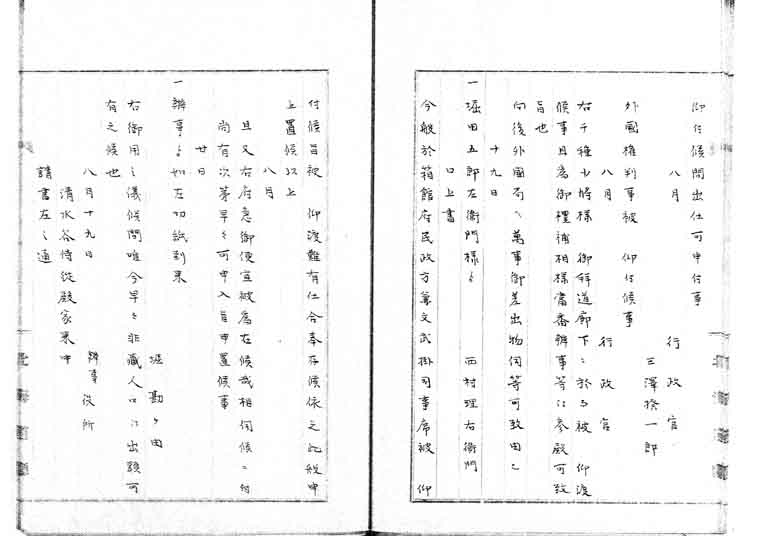 仰付候間出仕可申付事
八月　行政官
三澤揆一郎
外國権判事被　仰付候事
八月　行政官
右千種少将様　御拜道廊下ニ於而被　仰渡
候事且為御禮補相様當番辨事等江参殿可致
旨也
向後外國局ヘ萬事御差出物伺等可致由ニ
十九日
一堀田五郎左衛門様ゟ　西村理右衛門
口上書
今般於箱館府民政方兼文武掛司事席被　仰
付候旨被　仰渡難有仕合奉存候依之此段申
上置候以上
八月
且又右府急御便宜被為在候哉相伺候ニ付
尚有次第早々可申入旨申置候事
廿日
一辨事ゟ如左切紙到来
堀勘ヶ由
右御用之儀候間唯今早々非蔵人口江出頭可
有之候也
八月十九日　辨事役所
清水谷侍従殿家来中
請書左之通